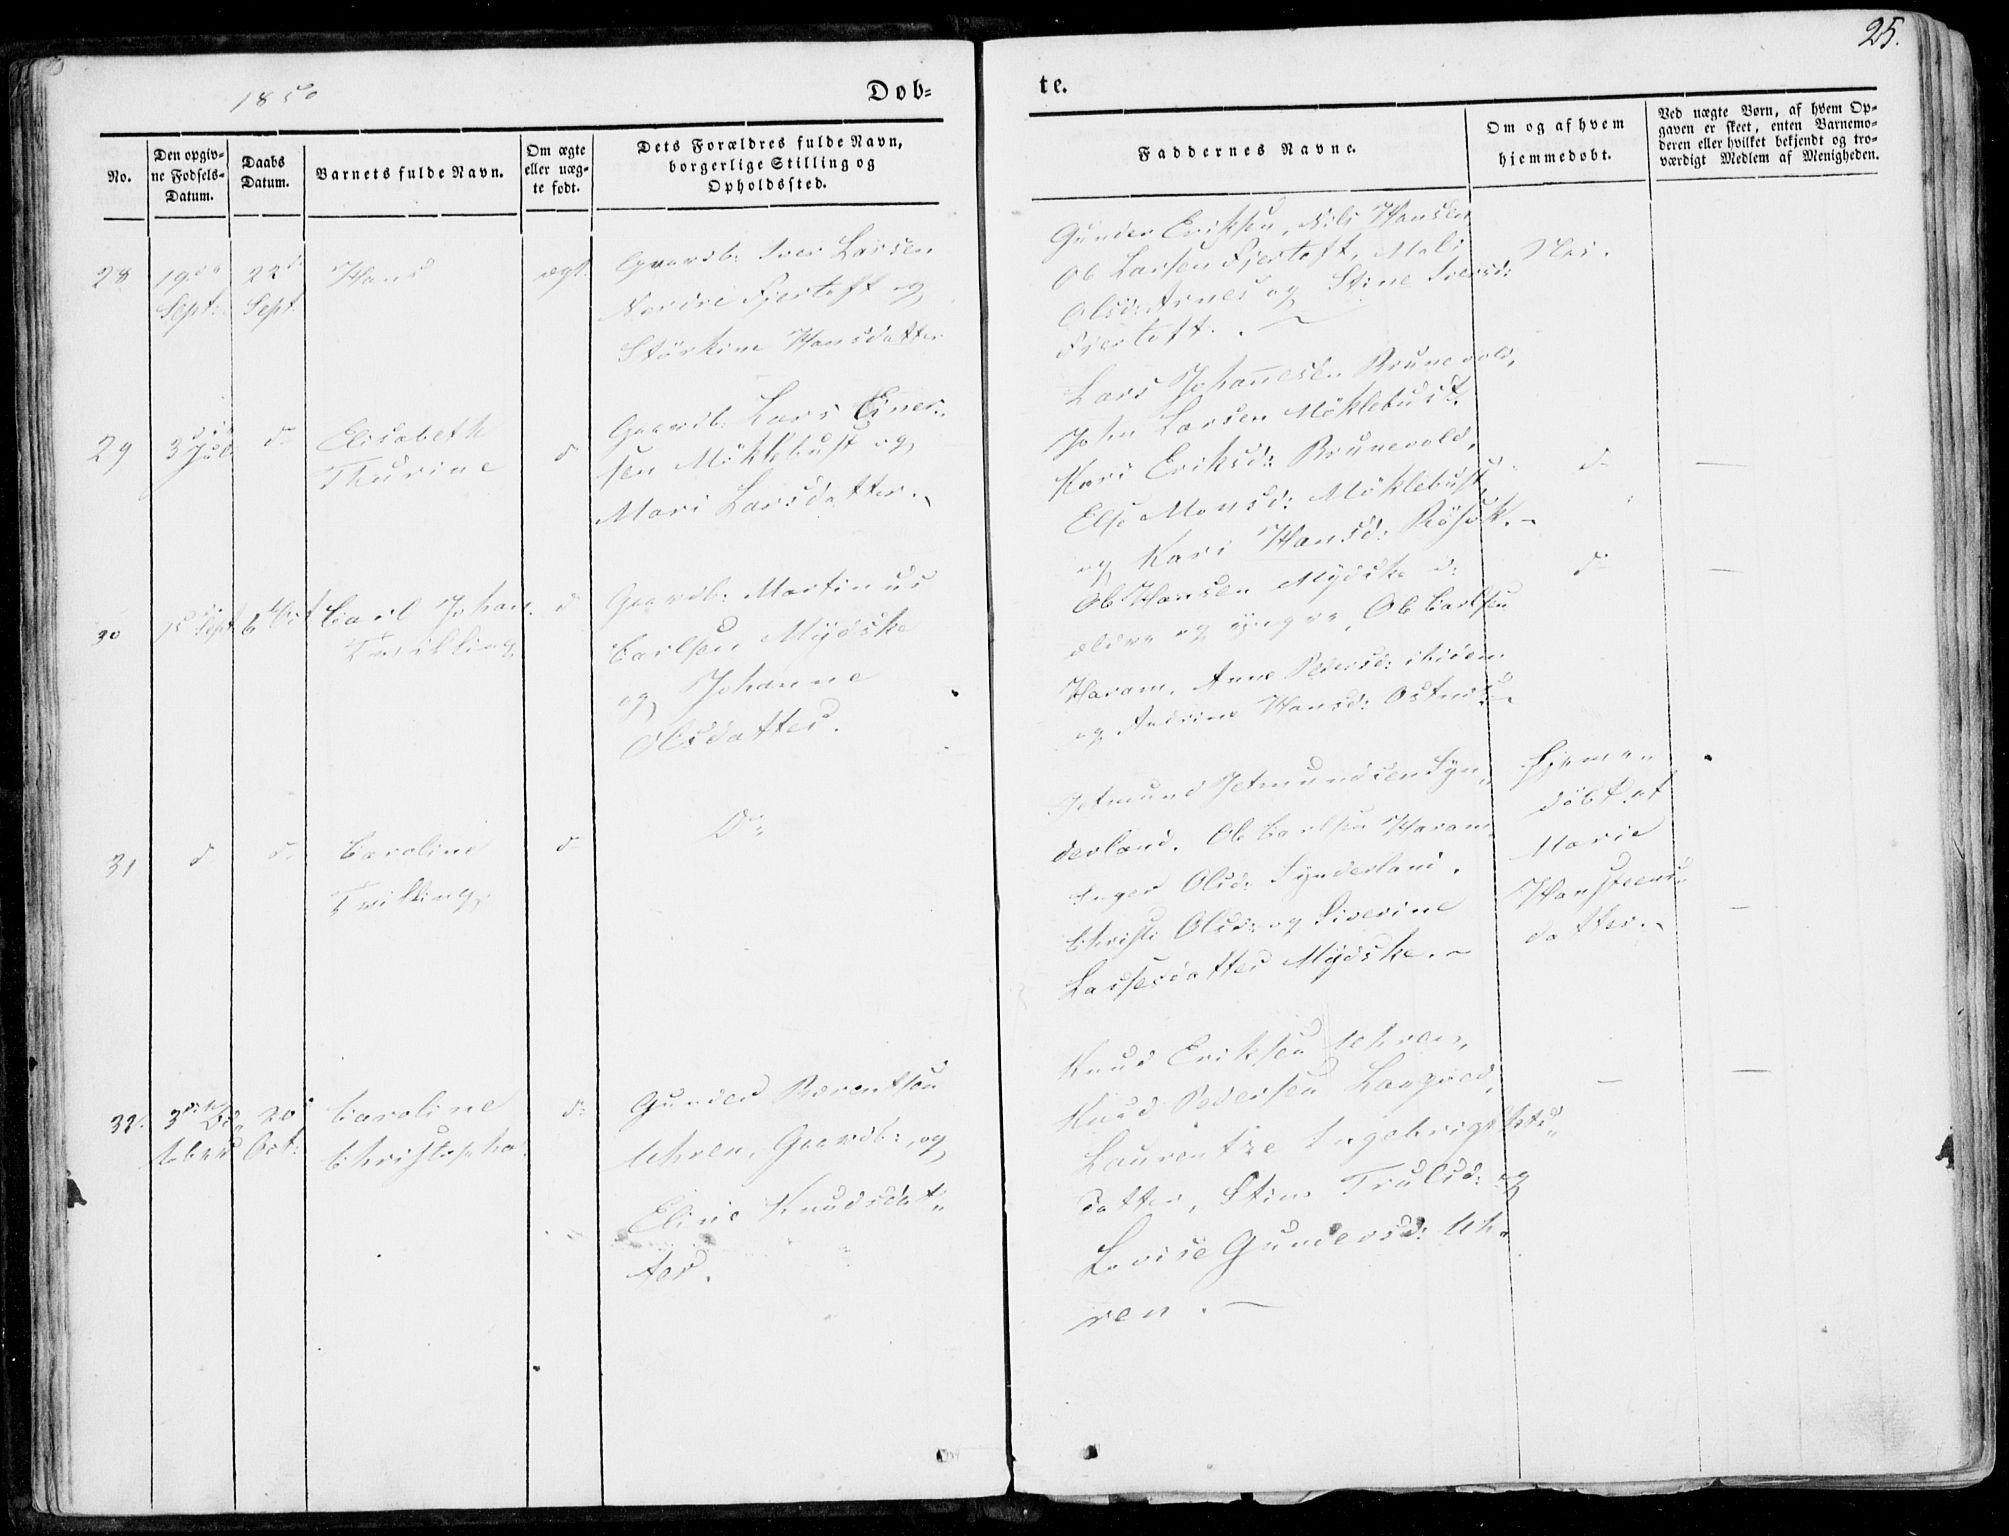 25.
1850
Døb=
te.
No.
Den opgiv=
ne Fødsels=
Datum.
Daabs
Datum.
Barnets fulde Navn.
Om ægte
eller uæg=
te født.
Dets Forældres fulde Navn,
borgerlige Stilling og
Opholdssted.
Faddernes Navne.
Om og af hvem
hjemmedøbt.
Ved uægte Børn, af hvem Op=
gaven er skeet, enten Barnemo=
deren eller hvilket bekjendt og tro=
værdigt Medlem af Menigheden.
28
19de
Sept:
22de
Sept.
Hans
ægt.
Gaardb: Iver Larsen
Nordre Fjertoft og
Störkine Hansdatter
Gunder Eriksen, Nils Hansen
Ole Larsen Fjertoft, Mali
Olsd: Arnes og Stine Iversd:
Fjertoft. . ~
Nei.
29
3die
Juli
d–
Elisabeth
Thurine
d
Gaardb: Lars Einer=
sen Möklebust og
Mari Larsdatter.
Lars Johannesen Brunevold,
John Larsen Möklebust.
Kari Eriksd: Brunevold,
Else Monsd: Möklebust,
og Kari Hansd: Rösok. –
d–
—
30
15de Sept
6te Oct
Carl Johan
Tvilling
d
Gaardb: Martinus
Carlsen Mydske
og Johanne
Olsdatter.
Ole Hansen Mydske d:
ældre og yngre, Ole Carlsen
Haram, Anne Pedersd: ibidem
og Andrine Hansd:
d–
—
31
d–
d–
Caroline
Tvilling.
d–
Do
Jetmund Jetmundsen Syn=
derland. Ole Carlsen Haram,
Inger Olsd: Synderland.
Christi Olsd: og Siverine
Lassesdatter Mydske. ~
Hjeme=
döbt af
Marie
Hansteens=
datter. ~
—
32.
3die Oc=
tober
20de
Oct:
Caroline
Christopha
d:
Gunder Berentsen
Uhren, Gaardb:, og
Eline Knudsdat=
ter.
Knud Eriksen Uhren,
Knud Pedersen Langved,
Laurentze Ingebrigtsd=
datter, Stine Trulsd: og
Lovise Gundersd: Uh=
ren. —
—
—